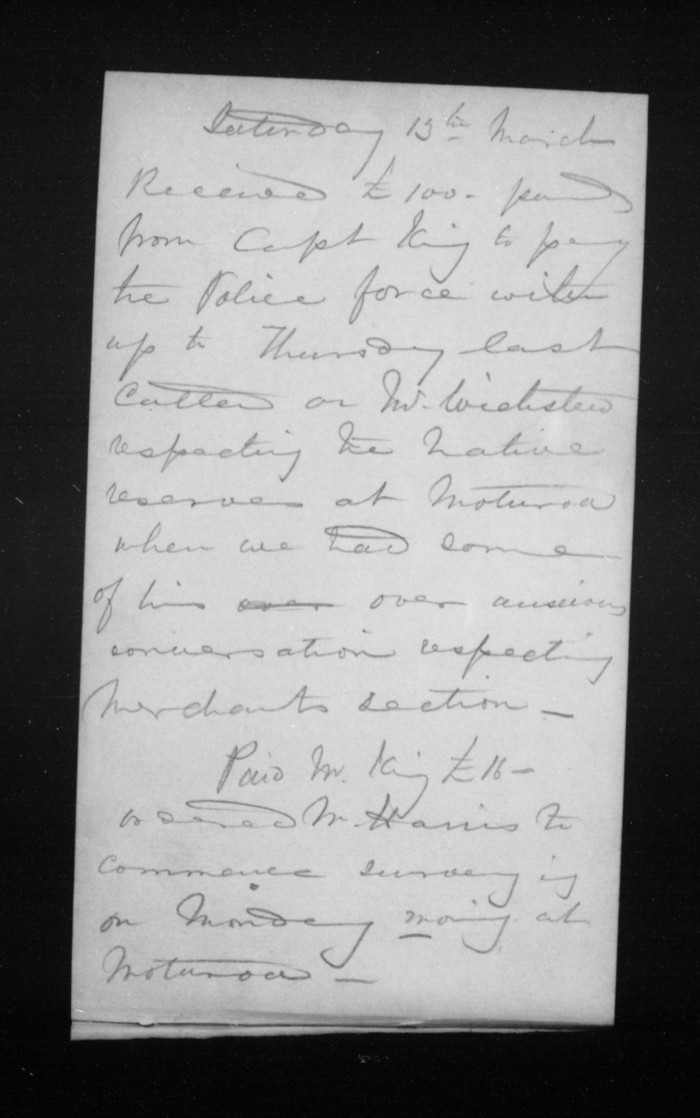 Saturday 13th March
Received £100 - paid
from Capt King to pay
the Police force with
up to Thursday last
Called on Mr. Wicksteed
respecting the Native
reserves at Moturoa
when we had some
of his over over anxious
conversation respecting
Merchants section -
Paid Mr. King £16 -
ordered Mr Harris to
commence surveying
on Monday morng at
Moturoa -